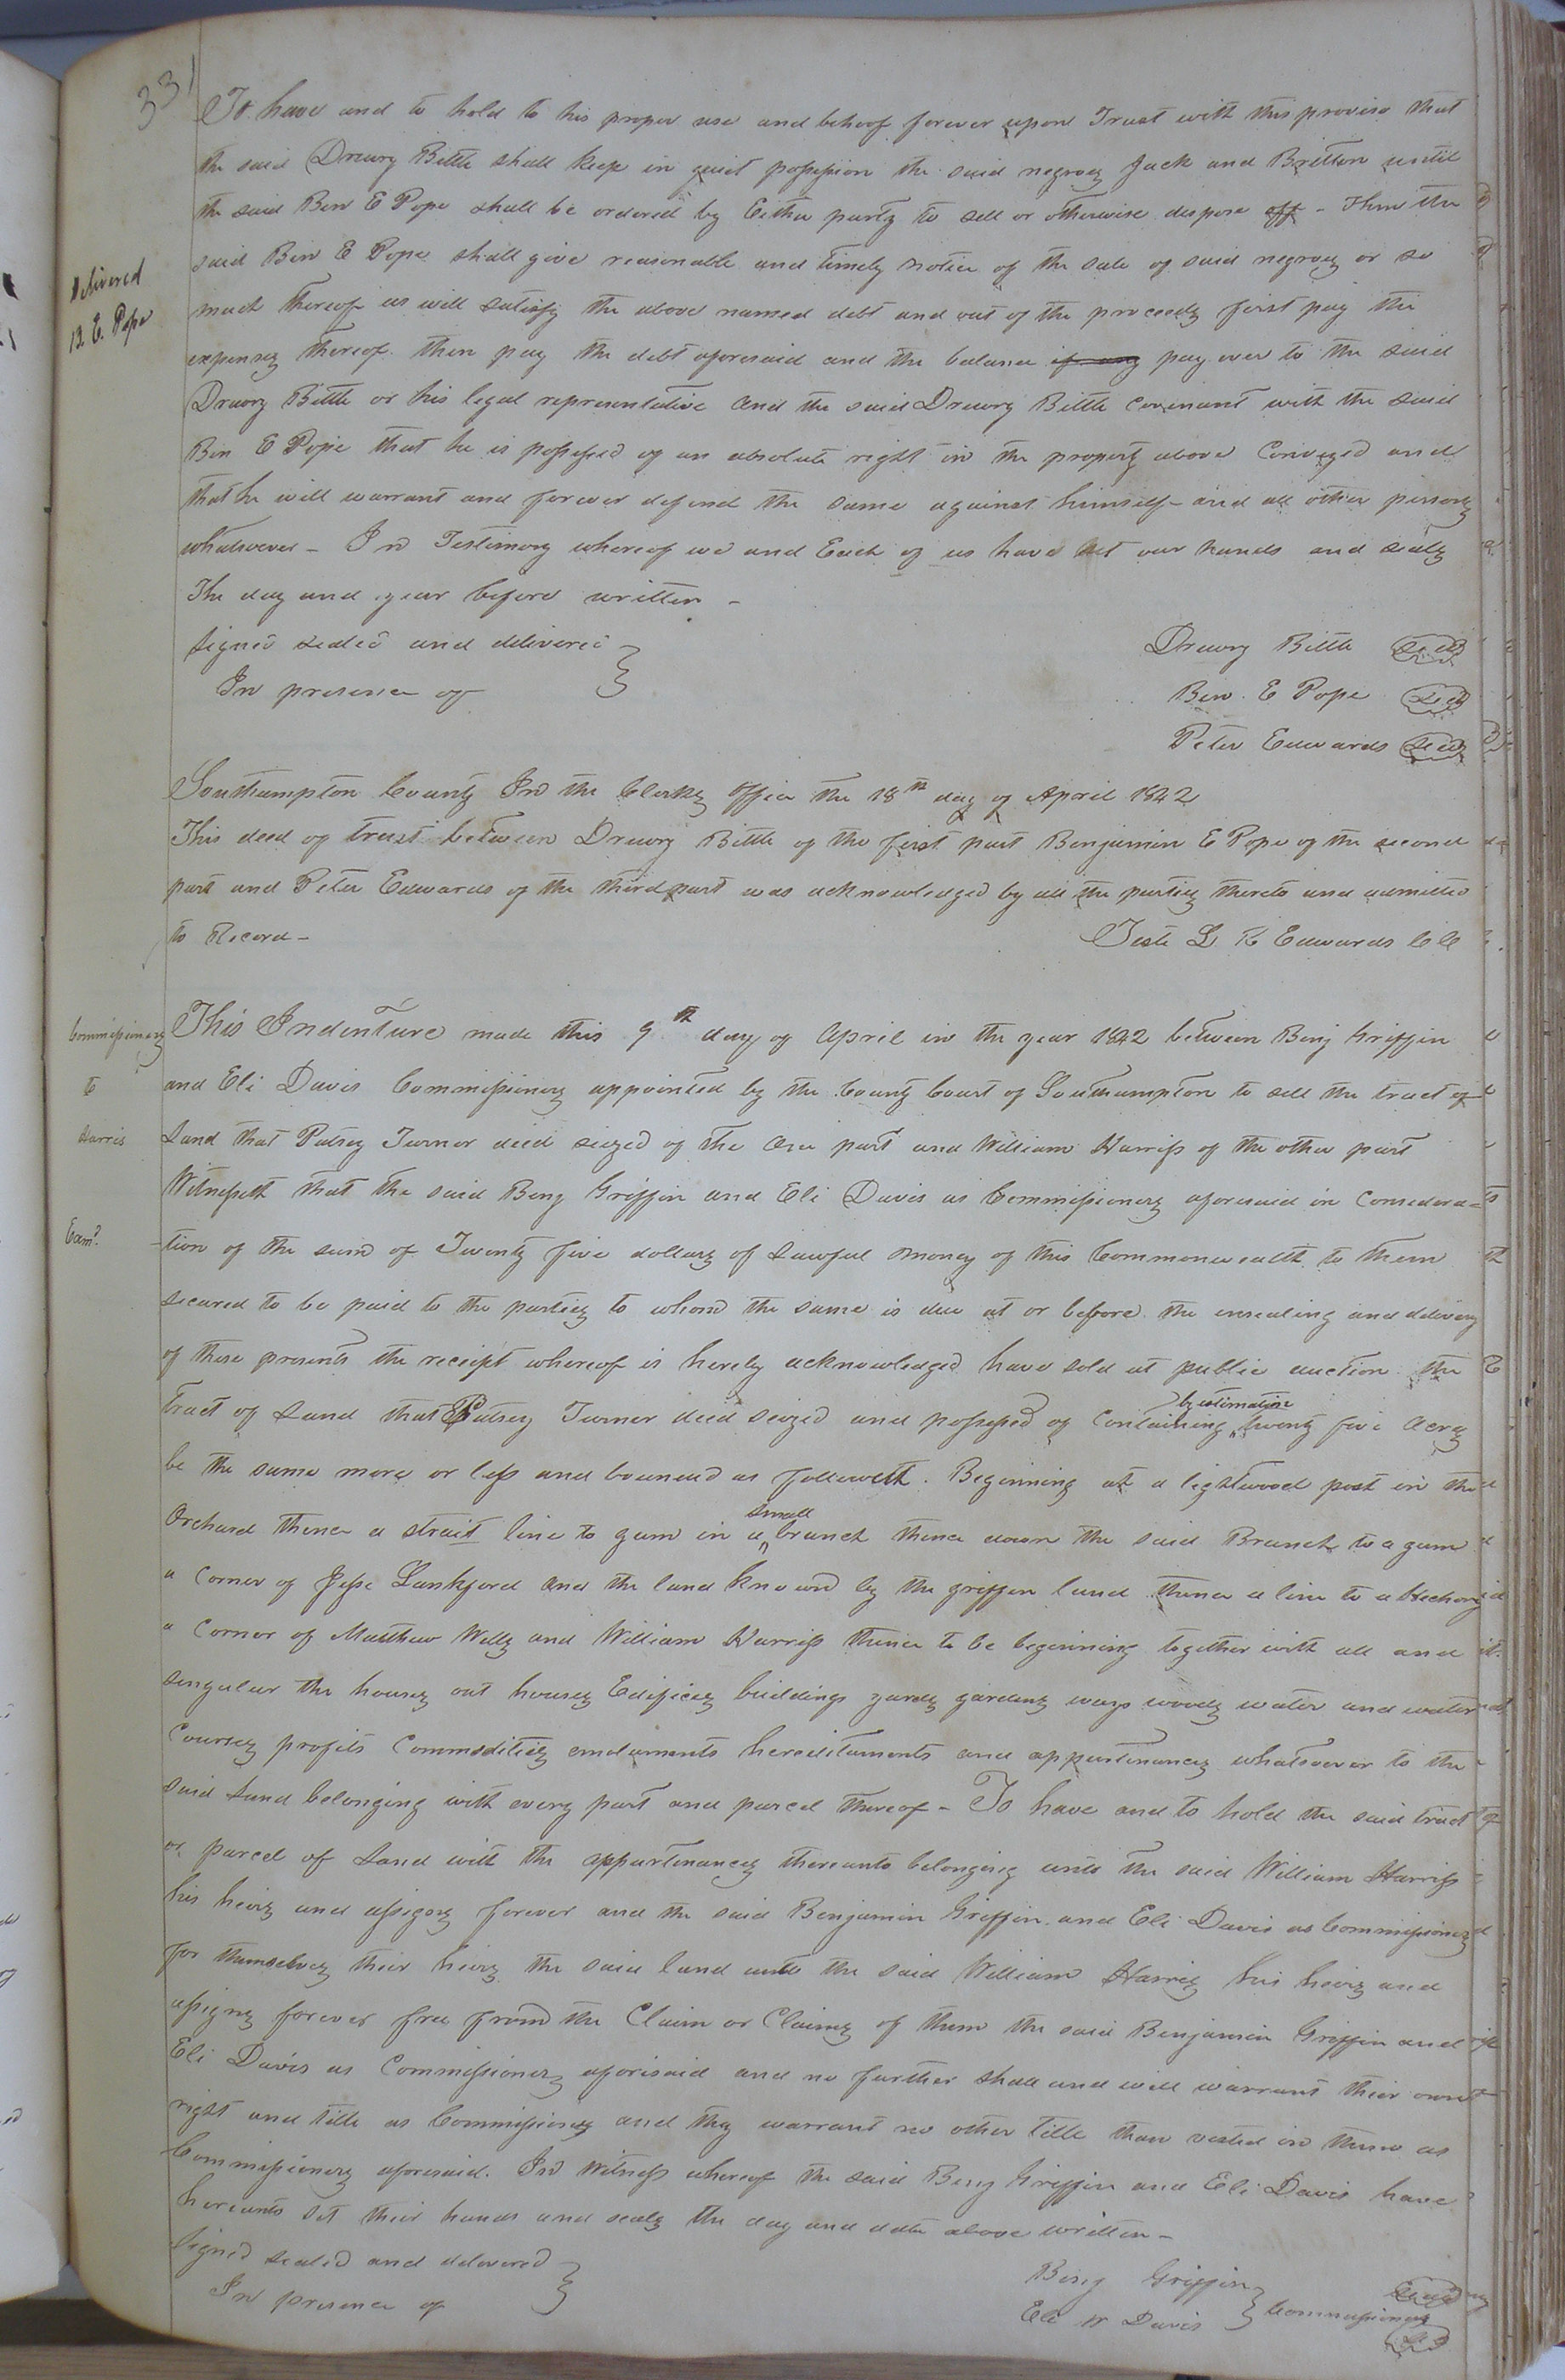 331
To have and to hold to his proper use and behoof forever upon Trust with this proviso that
the said Drewry Bittle shall keep in quiet possession the said negroes Jack and Britton until
the said Ben E Pope shall be ordered by Either party to sell or otherwise dispose off - Then the
said Ben E Pope shall give reasonable and timely notice of the sale of said negroes or so
Delivered
B. E. Pope
much thereof as will satisfy the above named debt and out of the proceeds first pay the
expenses thereof then pay the debt aforesaid and the balance if any pay over to the said
Drewry Bittle or his legal representative and the said Drewry Bittle covenant with the said
Ben E Pope that he is possessed of an absolute right in the property above Conveyed and
that he will warrant and forever defend the same against himself and all other persons
whatsoever - In Testimony whereof we and Each of us have set our hands and seals
The day and year before written -
Signed sealed and delivered
In presence of
Drewry Bittle Seal
Ben. E Pope Seal
Peter Edwards Seal
Southampton County In the Clerks office the 18th day of April 1842
This deed of trust between Drewry Bittle of the first part Benjamin E Pope of the second
part and Peter Edwards of the third part was acknowledged by all the parties thereto and admitted
to Record -
Teste L R Edwards CC
Commissioners
to
Harris
Exmd.
This Indenture made this 9th day of April in the year 1842 between Benj Griffin
and Eli Davis Commissioners appointed by the County Court of Southampton to sell the tract of
Land that Patsey Turner died seized of the One part and William Harriss of the other part
Witnesseth that the said Benj Griffin and Eli Davis as Commissioners aforesaid in Considera-
-tion of the sum of Twenty five dollars of Lawful money of this Commonwealth to them
secured to be paid to the parties to whom the same is due at or before the ensealing and delivery
of these presents the receipt whereof is hereby acknowledged have sold at public auction the
tract of Land that Patsey Turner died seized and possessed of Containing by estimation twenty five Acres
be the same more or less and bounded as followeth. Beginning at a lightwood post in the
Orchard thence a strait line to gum in a small branch thence down the said Branch to a gum
a Corner of Jesse Lankford and the land known by the griffin land thence a line to a Hickory
a Corner of Matthew Wells and William Harriss thence to be beginning together with all and
singular the houses out houses Edifices buildings yards gardens ways woods water and water
Courses profits Commodities emoluments hereditaments and appurtenances whatsoever to the
said Land belonging with every part and parcel thereof - To have and to hold the said tract
or parcel of Land with the appurtenances thereunto belonging unto the said William Harriss
his heirs and assigns forever and the said Benjamin Griffin and Eli Davis as Commissioners
for themselves their heirs the said land unto the said William Harris his heirs and
assigns forever free from the Claim or Claims of them the said Benjamin Griffin and
Eli Davis as Commissioners aforesaid and no further shall and will warrant their own
right and title as Commissioners and they warrant no other title than vested in them as
Commissioners aforesaid. In Witness whereof the said Benj Griffin and Eli Davis have
hereunto set their hands and seals the day and date above written -
Signed sealed and delivered
In presence of
Benj Griffin Seal
Eli W Davis Commissioners